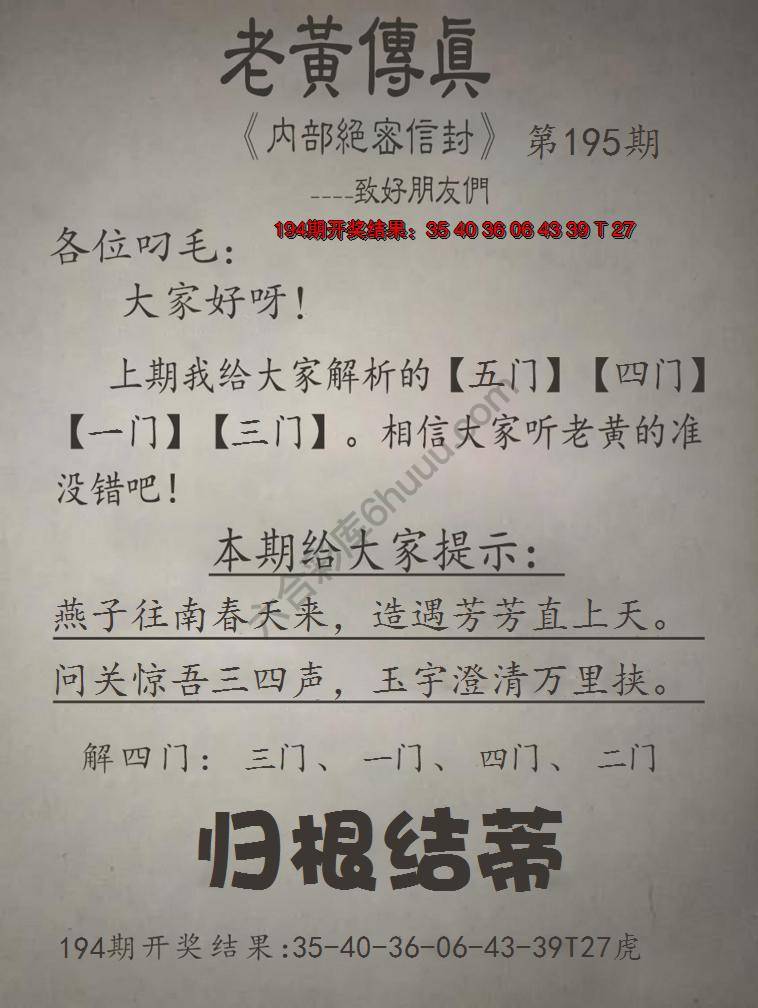 老黃傳眞
《内部絕密信封》 第195期
----致好朋友們
194期开奖结果：35 40 36 06 43 39 T 27
各位叼毛：
大家好呀！
上期我给大家解析的【五门】【四门】
【一门】【三门】。相信大家听老黄的准
没错吧！
本期给大家提示：
燕子往南春天来，造遇芳芳直上天。
问关惊吾三四声，玉宇澄清万里挟。
解四门：三门、一门、四门、二门
归根结蒂
194期开奖结果:35-40-36-06-43-39T27虎
六合彩库6huuu.com